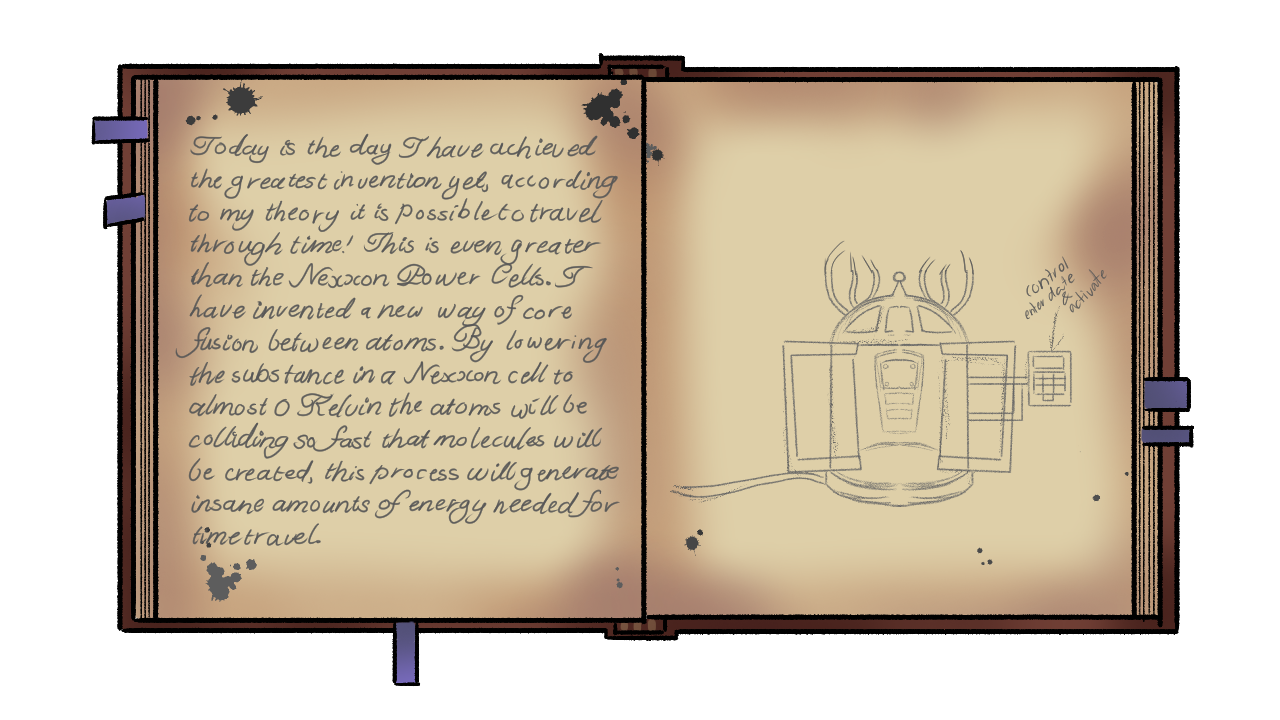 Today is the day I have achieved
the greatest invention yet, according
to my theory it is possible to travel
through time! This is even greater
than the Nexxon Power Cells. I
have invented a new way of core
fusion between atoms. By lowering
the substance in a Nexxon cell to
almost 0 Kelvin the atoms will be
colliding so fast that molecules will
be created, this process will generate
insane amounts of energy needed for
time travel.
control
enter date
&
activate